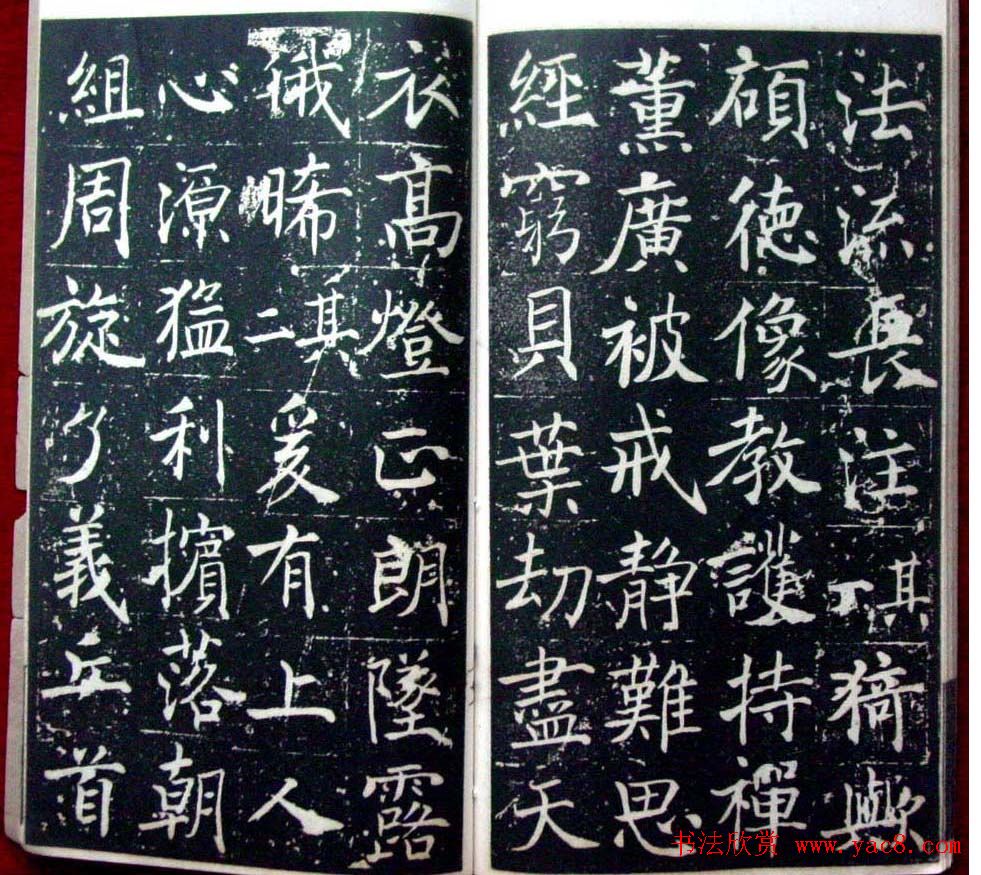 法流長注其一猗歟
碩德像教護持禪
薰廣被戒静難思
經窮貝葉劫盡天
衣高燈正朗墜露
俄晞其二爰有上人
心源猛利擯落朝
組周旋了義丘首
书法欣赏 www.yac8.com